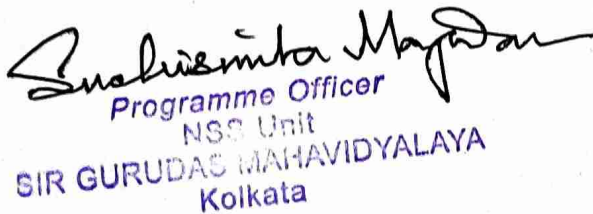 Suchismita Majumdar
Programme Officer
NSS Unit
SIR GURUDAS MAHAVIDYALAYA
Kolkata